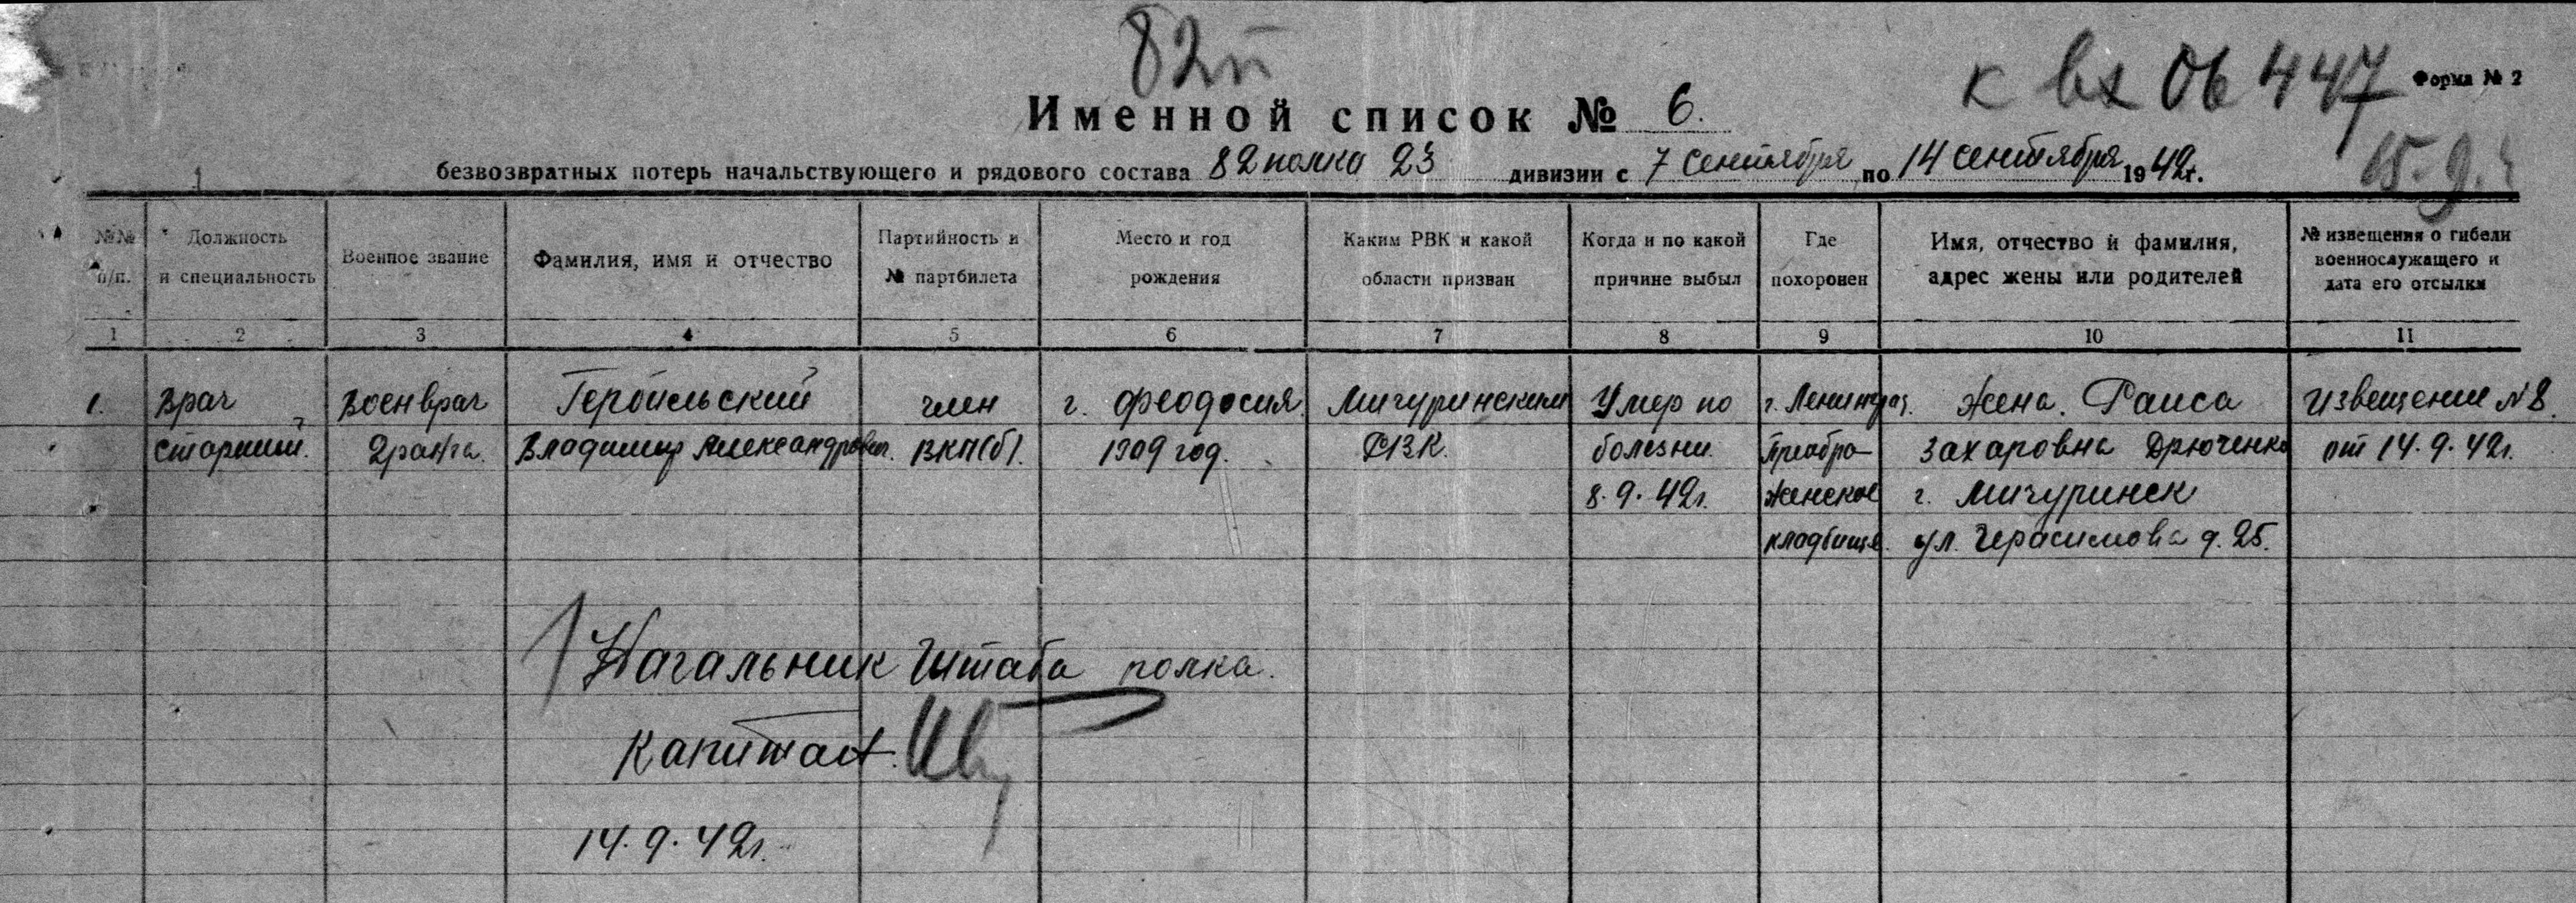 82п
к вх 06447
Форма № 2
Именной список № 6.
15.9.
безвозвратных потерь начальствующего и рядового состава 82 полка 23 дивизии с 7 сентября по 14 сентября 1942г.
№№ п/п. Должность и специальность Военное звание Фамилия, имя и отчество Партийность и № партбилета Место и год рождения Каким РВК и какой области призван Когда и по какой причине выбыл Где похоронен Имя, отчество и фамилия, адрес жены или родителей № извещения о гибели военнослужащего и дата его отсылки
1 2 3 4 5 6 7 8 9 10 11
1. Врач Военврач член г. Феодосия. Мичуринским Умер по г. Ленинград. Жена. Раиса Извещение №8.
старший. 2ранга. Владимир Александрович. ВКП(б). 1909 год. РВК. болезни. Преобра- Захаровна Дрюченко от 14.9.42г.
8.9.42г. женское г. Мичуринск
кладбище. ул. Герасимова д. 25.
Начальник Штаба полка.
капитан
14.9.42г.